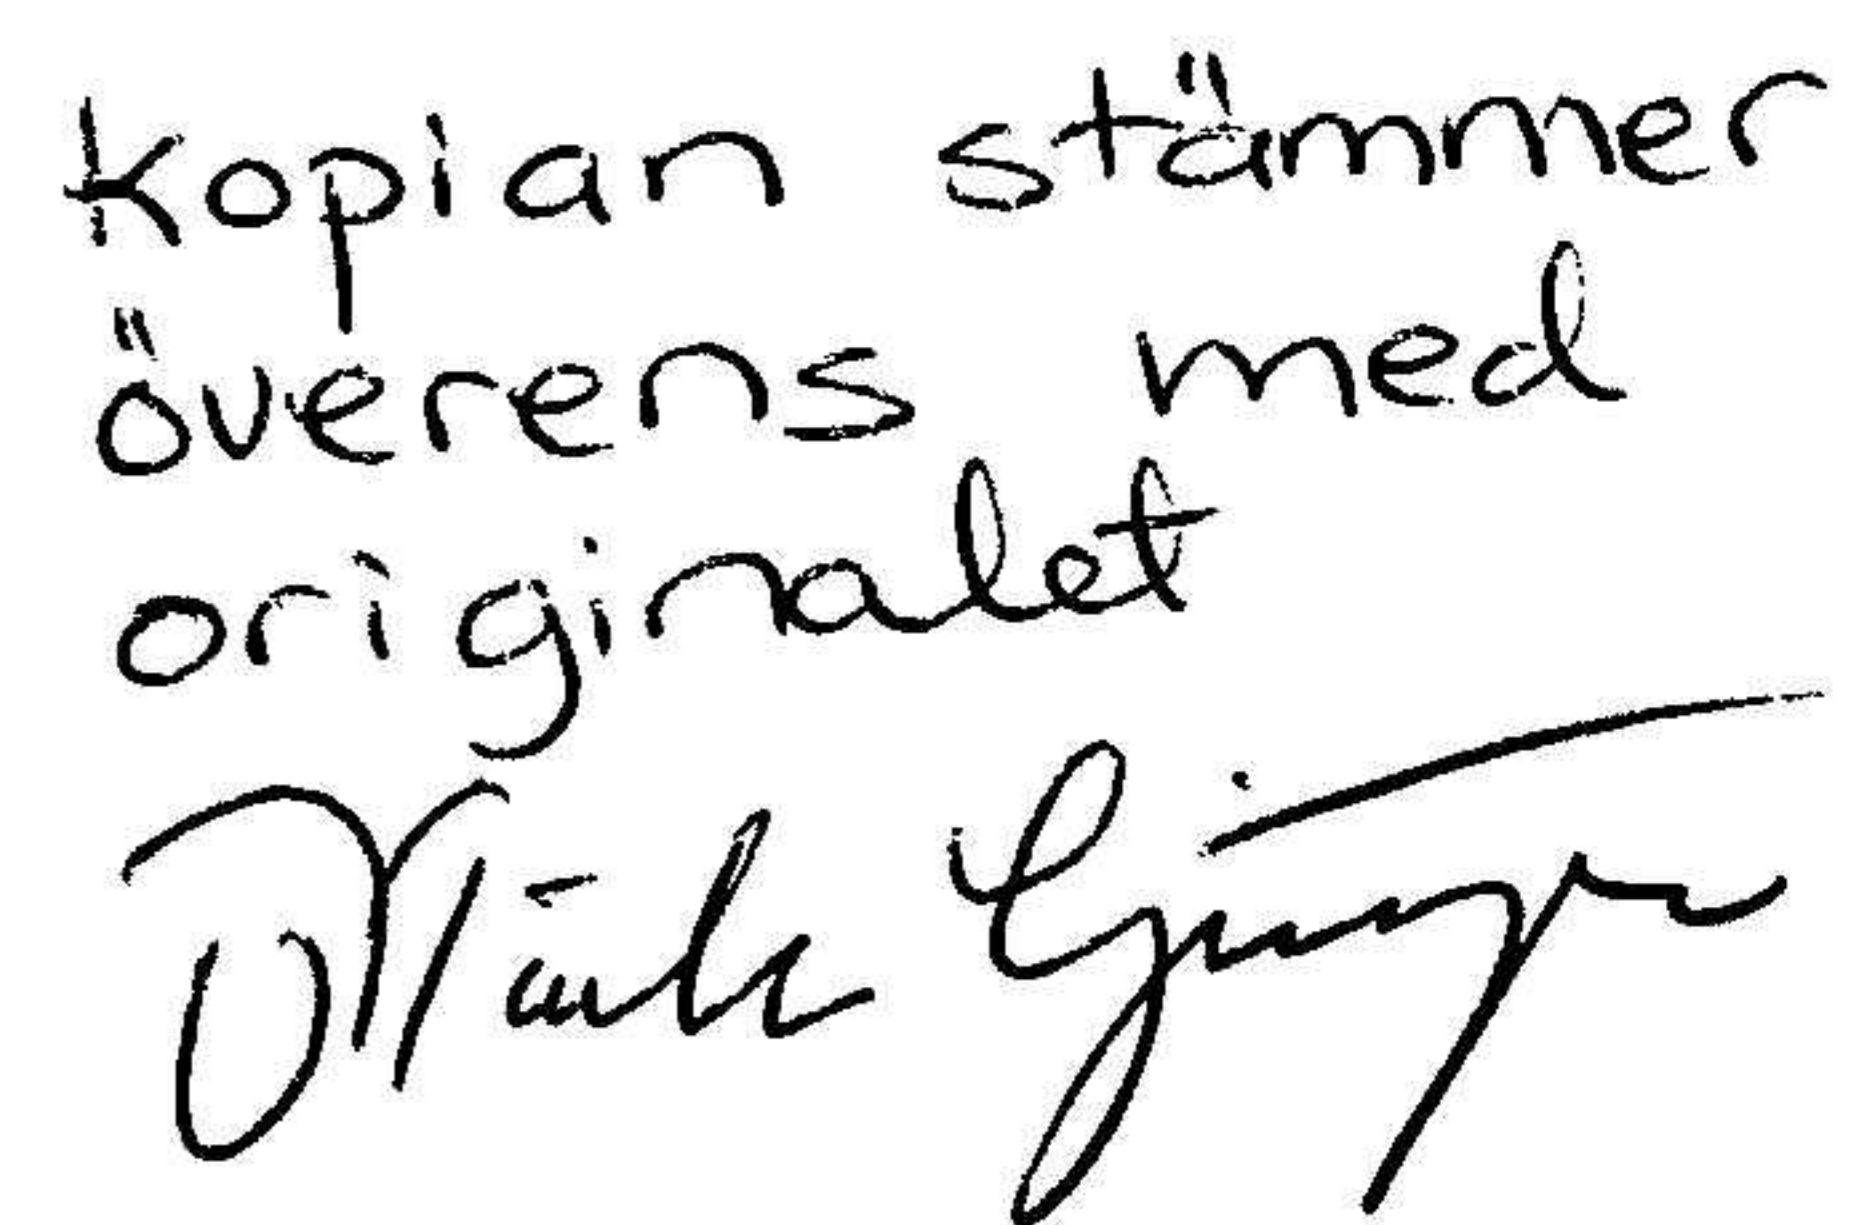 kopian stämmer
överens med
originalet